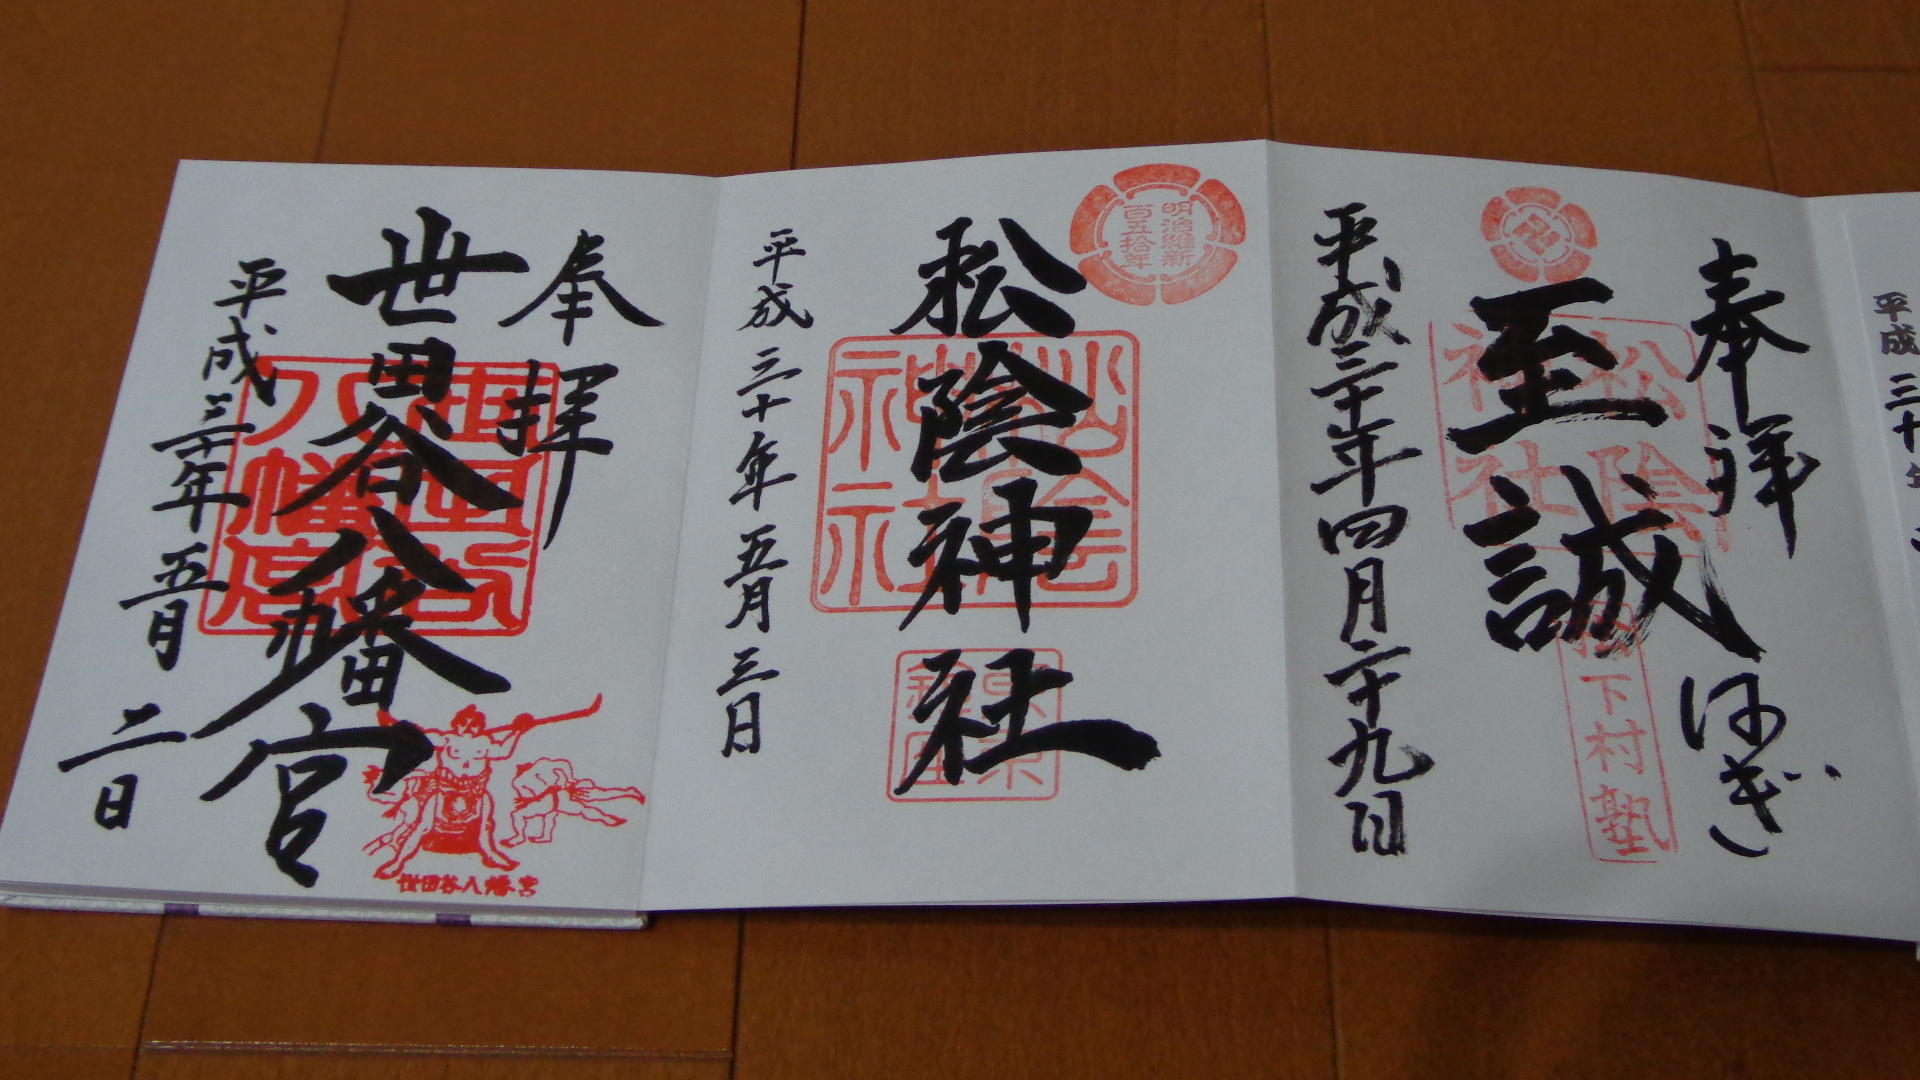 奉拝
世田谷八幡宮
平成三十年五月二日
世田谷八幡宮
世田谷八幡宮
明治維新
百五拾年
松陰神社
松陰神社
平成三十年五月三日
奉拝
はぎ
至誠
松陰
神社
松下村塾
平成三十年四月二十九日
平成三十年